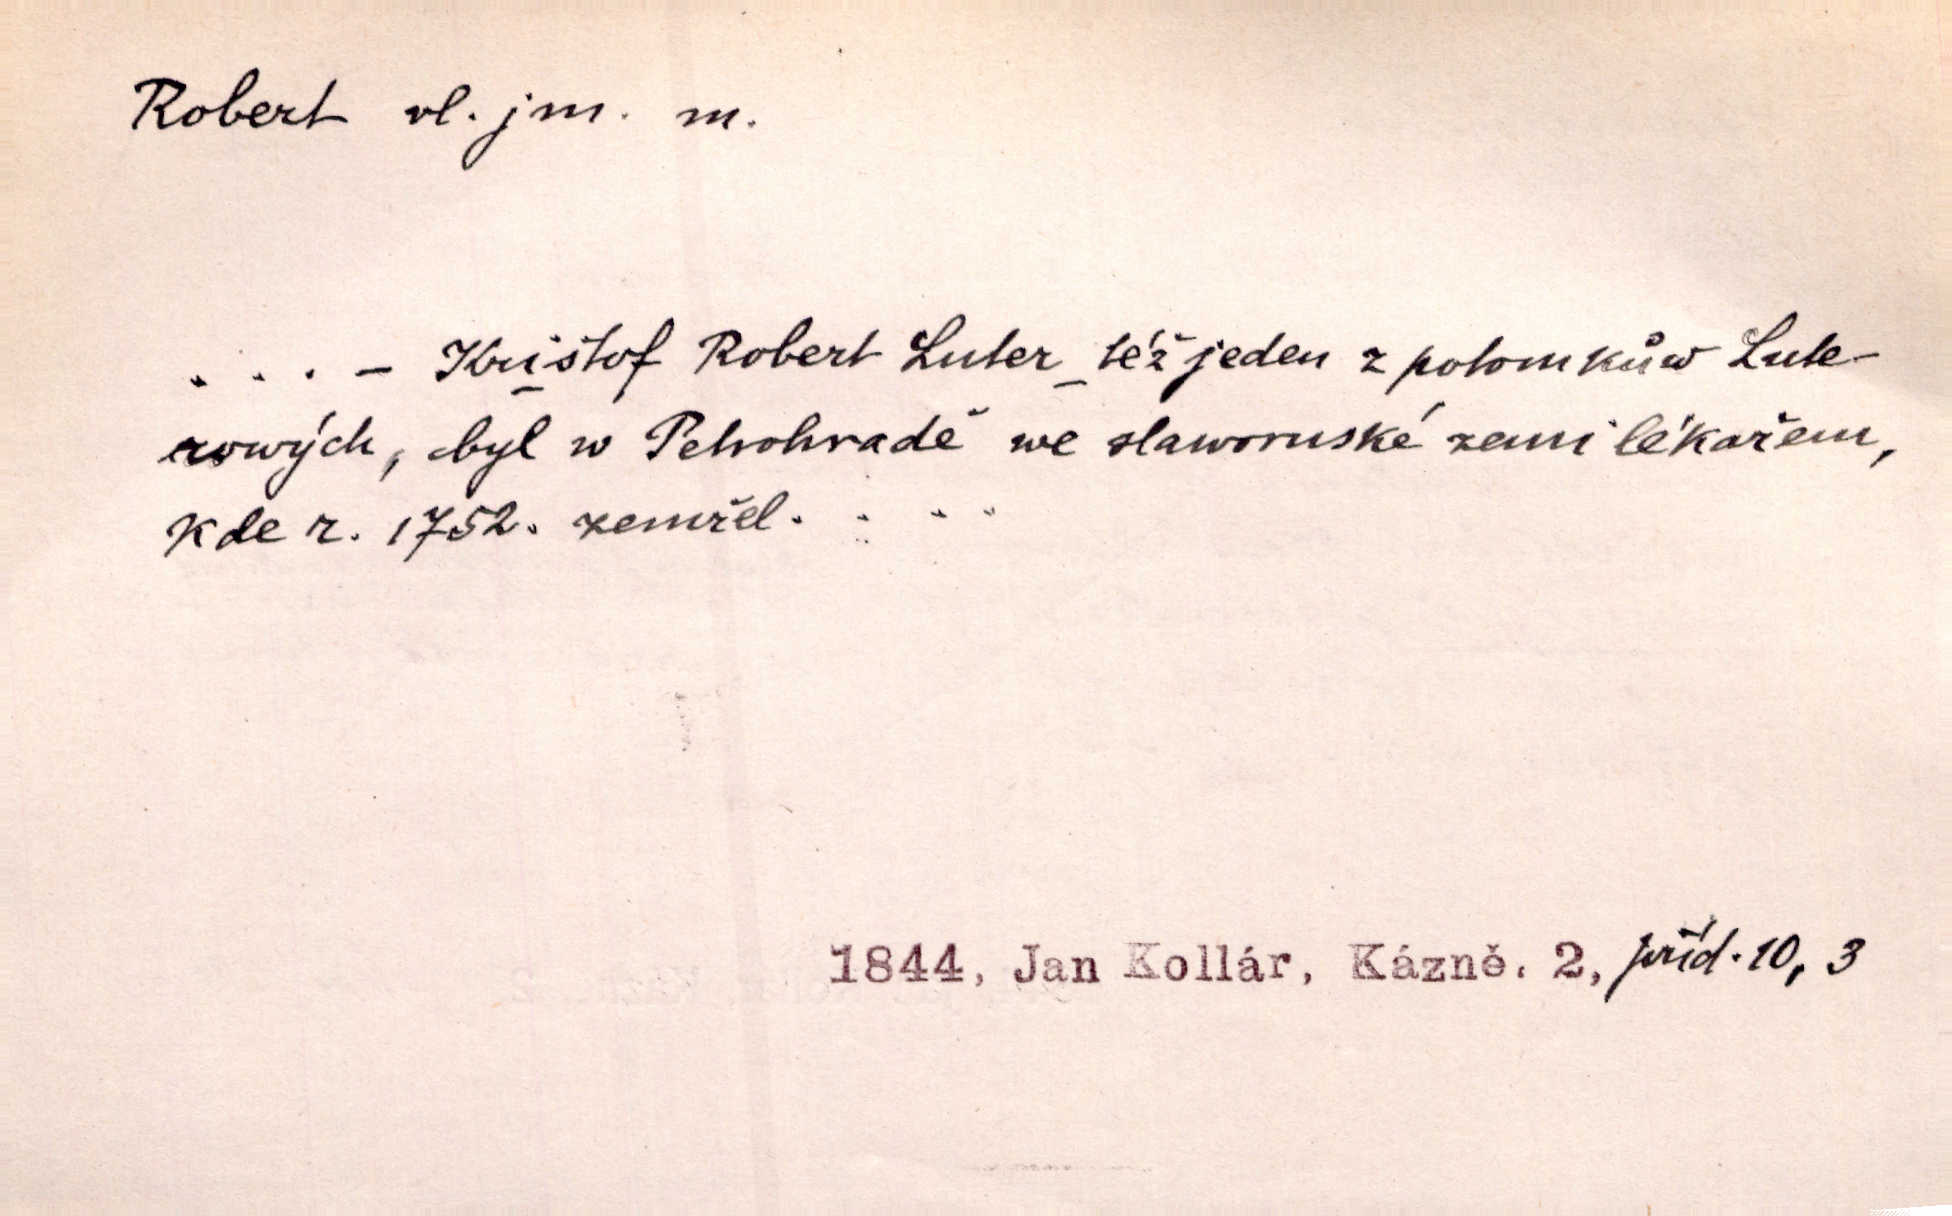 Robert vl. jm. m.
. . . – Krištof Robert Luter též jeden z potomkůw Lute-
rowých, byl w Petrohradě we slaworuské zemi lékařem,
kde r. 1752. zemřel. . . .
1844, Jan Kollár, Kázně. 2, příd. 10, 3